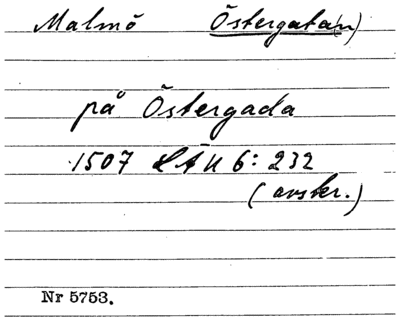 Malmö Östergata(n)
på Östergada
1507 LÄU 6: 232
(avskr.)
Nr 5753.